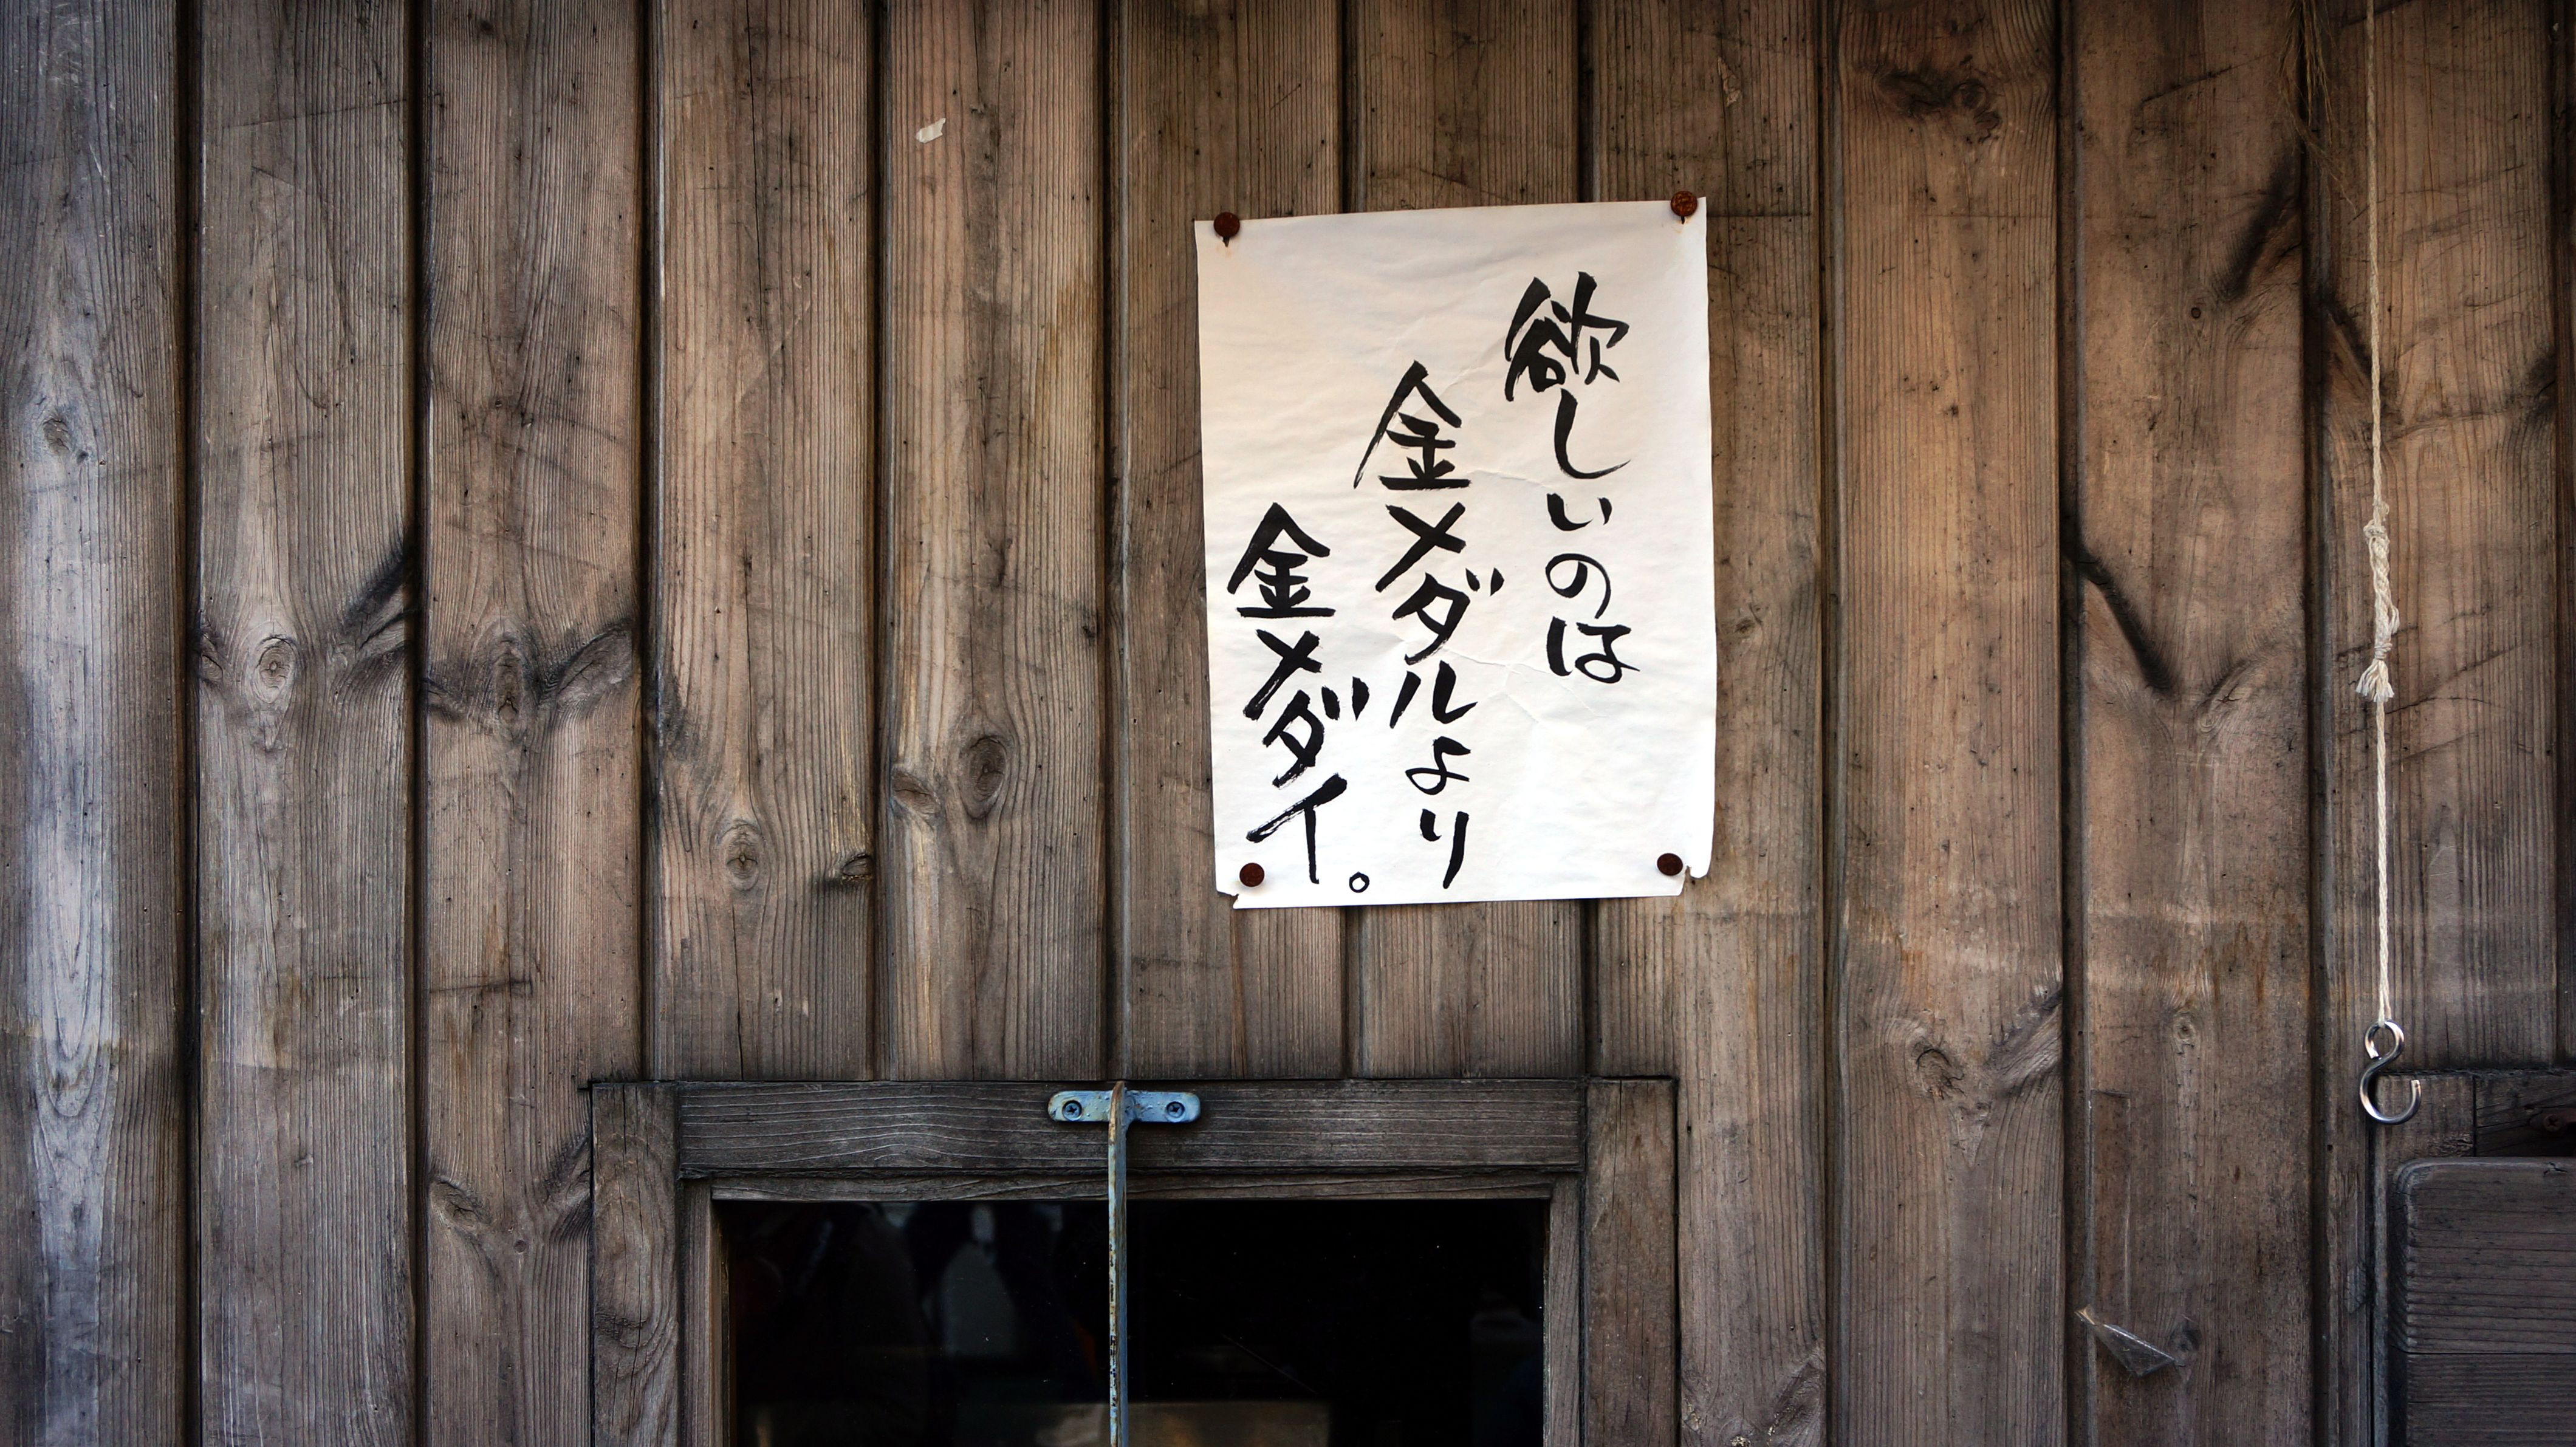 欲しいのは
金メダルより
金メダイ。